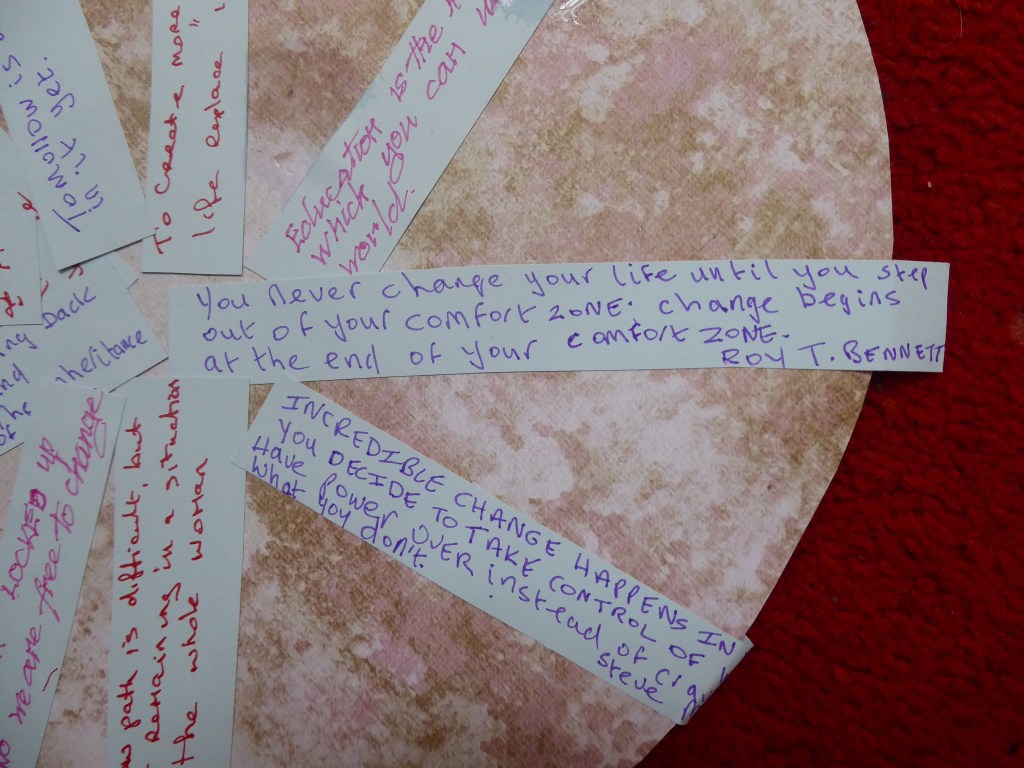 Tomorrow is
in it yet.
To create more
life replace
Education is the
which you can
world.
You never change your life until you step
out of your comfort ZONE; change begins
at the end of your comfort ZONE.
ROY T. BENNETT
INCREDIBLE CHANGE HAPPENS IN
you DECIDE TO TAKE CONTROL OF
Have power OVER instead of
what you don't.
steve
Back
nheritance
LOCKED up
we are free to change
path is difficult, but
remaining in a situation
the whole woman